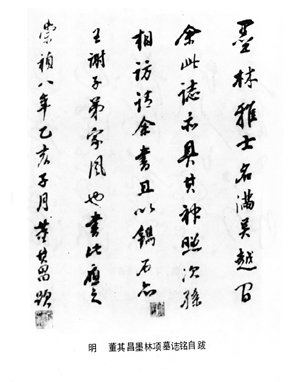 墨林雅士名满吴越间
余此誌亦具其神照次孫
相访请余書且以鐫石亦
王謝子弟家風也書此應之
崇禎八年乙亥子月董其昌跋
明 董其昌墨林项墓诘铭自跋